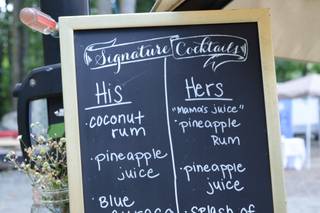 Signature Cocktails
His
•coconut
rum
•pineapple
juice
•Blue
Hers
"Mama's juice"
•pineapple
Rum
•pineapple
juice
•splash of